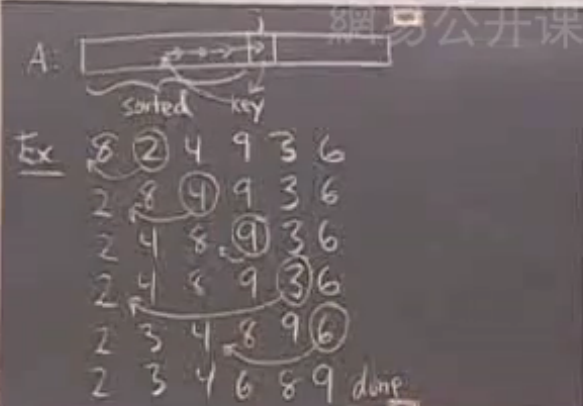 網易公开课
j
A:
sorted key
Ex 8 2 4 9 3 6
2 8 4 9 3 6
2 4 8 9 3 6
2 4 8 9 3 6
2 3 4 8 9 6
2 3 4 6 8 9 done